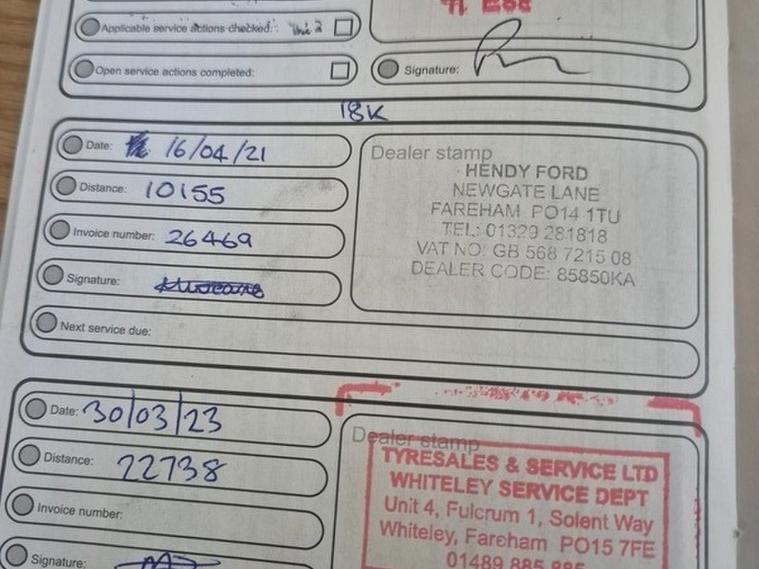 Applicable service actions checked:
Open service actions completed:
Signature:
18K
Date: 16/04/21
Distance: 10155
Invoice number: 26469
Signature:
Next service due:
Dealer stamp
HENDY FORD
NEWGATE LANE
FAREHAM PO14 1TU
TEL: 01329 281818
VAT NO: GB 568 7215 08
DEALER CODE: 85850KA
Date: 30/03/23
Distance: 22738
Invoice number:
Signature:
Dealer stamp
TYRESALES & SERVICE LTD
WHITELEY SERVICE DEPT
Unit 4, Fulcrum 1, Solent Way
Whiteley, Fareham PO15 7FE
01489 885